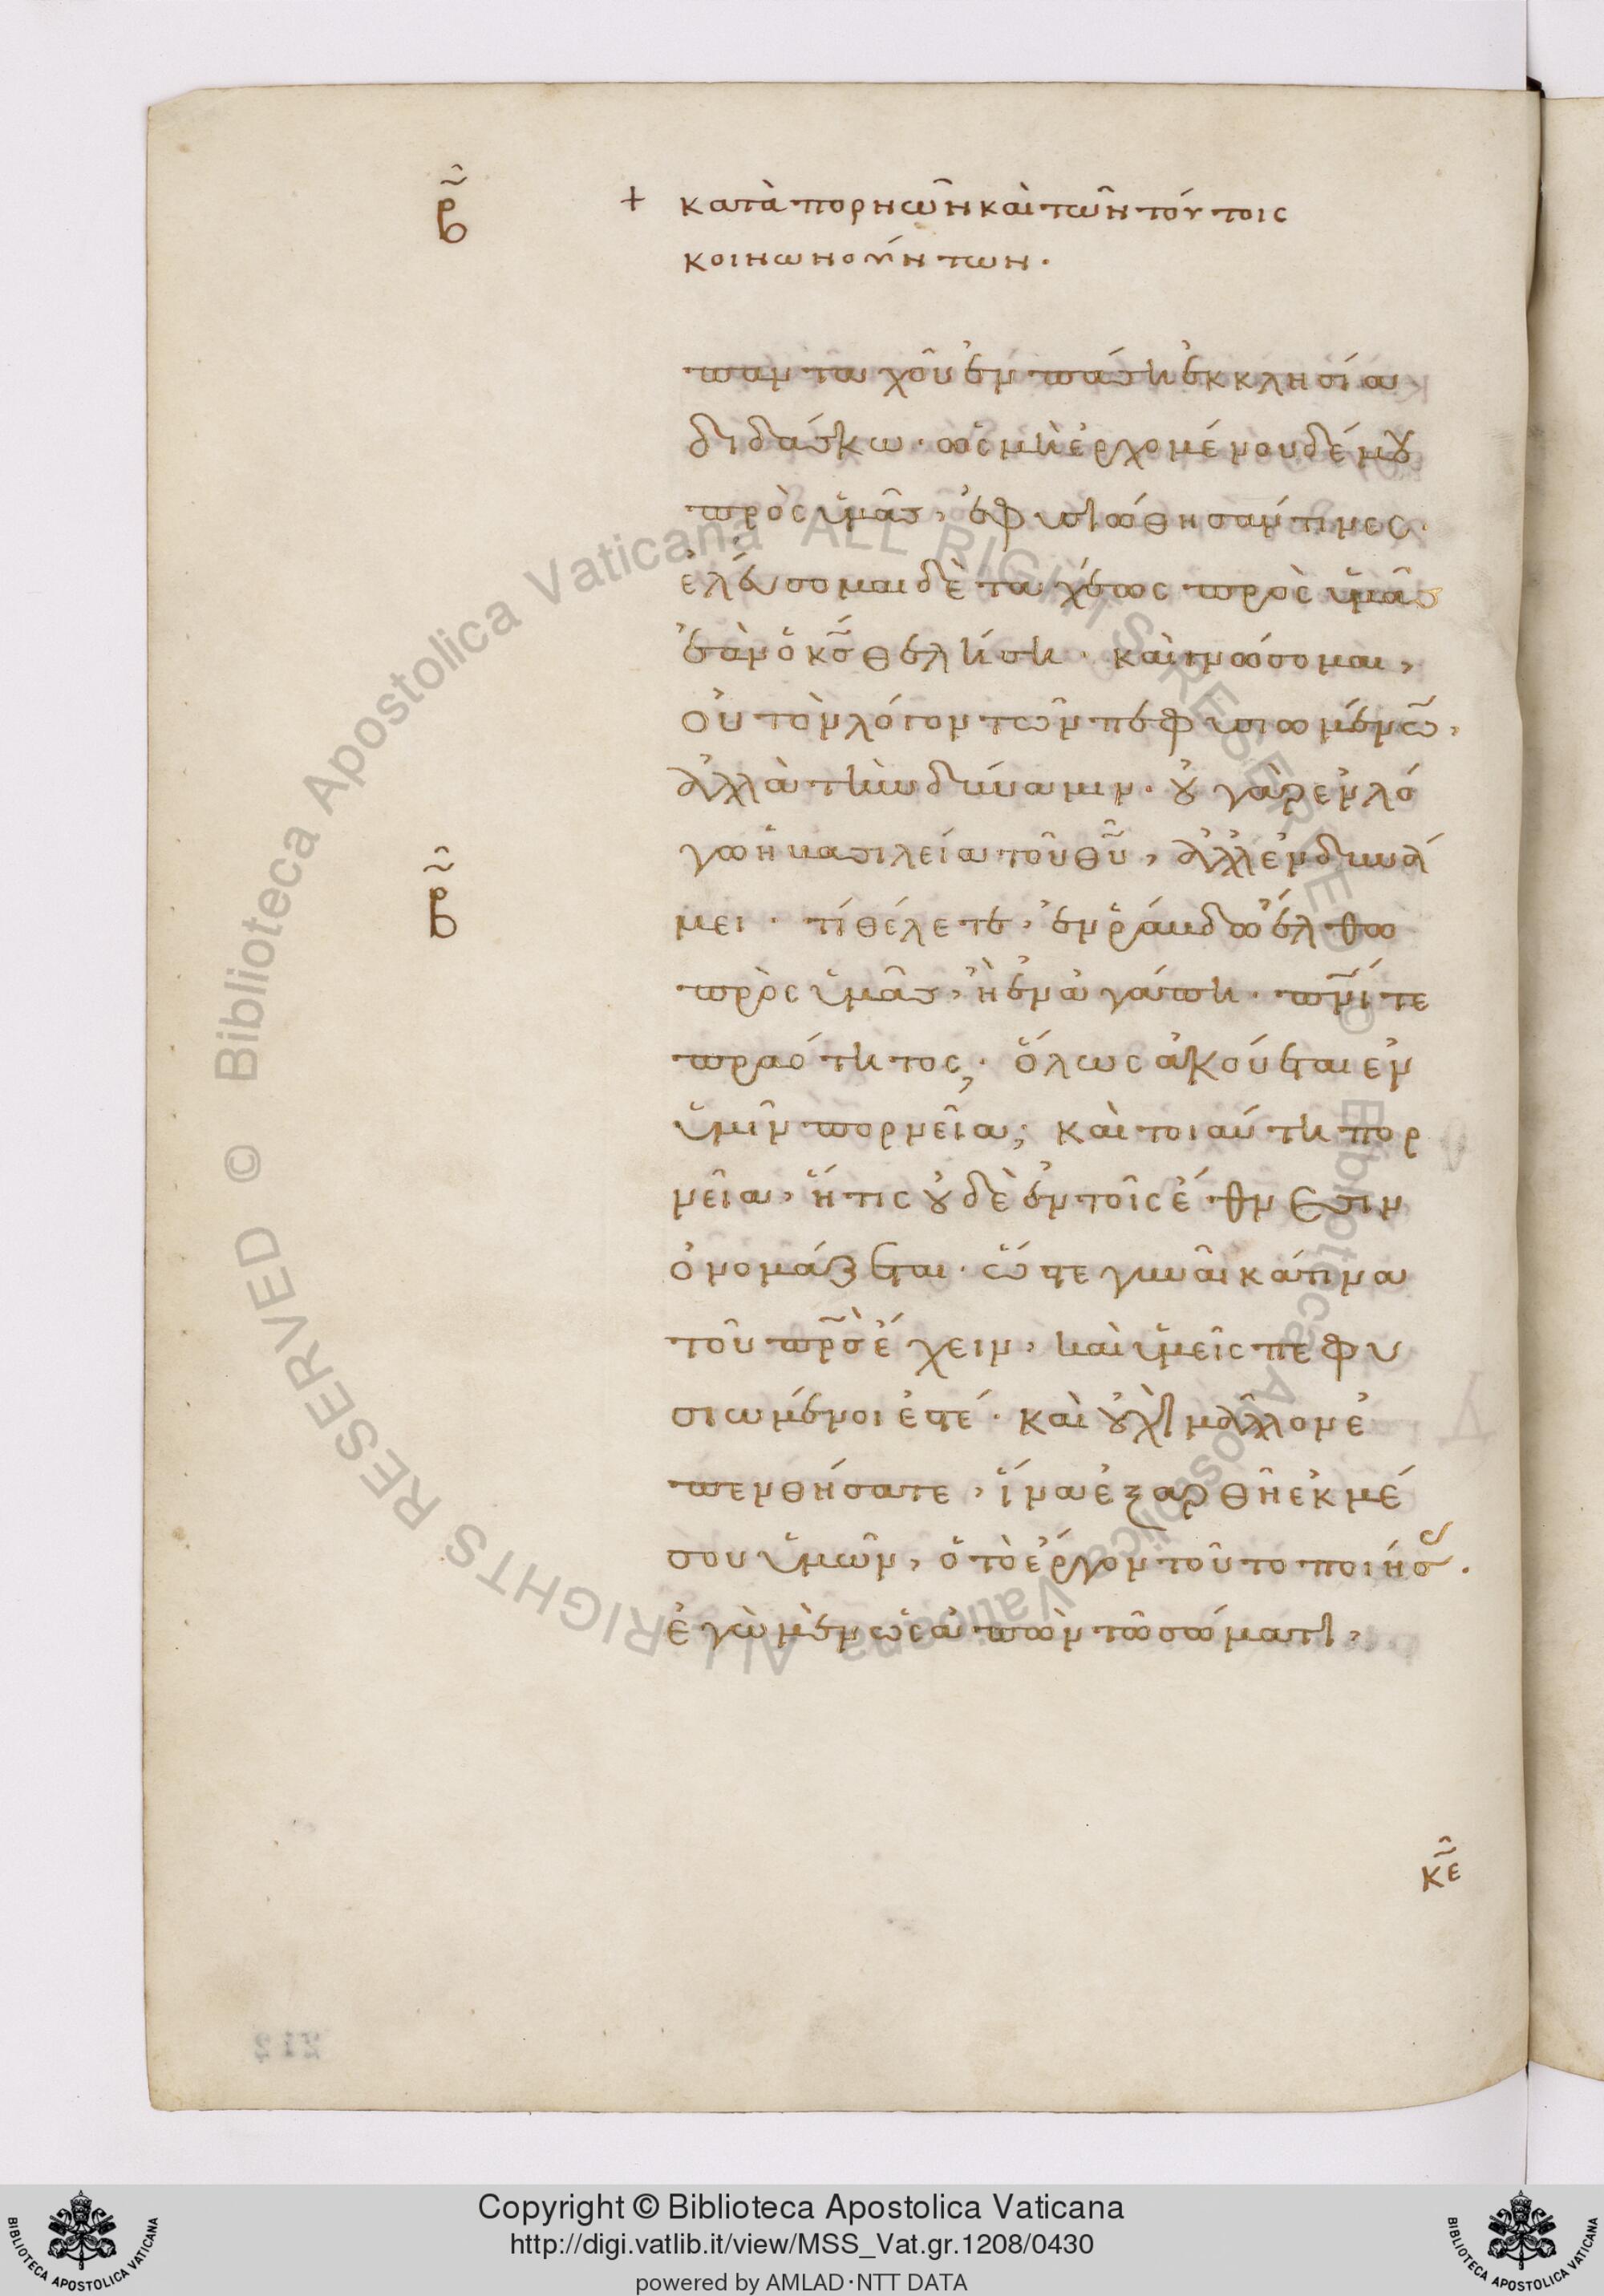 β
+ κατὰ πορνῶν καὶ τῶν τούτοις
κοινωνούντων.
πανταχοῦ ἐν πάσῃ ἐκκλησία
διδάσκω. ὡς μὴ ἐρχομένου δέ μου
πρὸς ὑμᾶς, ἐφυσιώθησάν τινες.
ἐλεύσομαι δὲ ταχέως πρὸς ὑμᾶς
ἐὰν ὁ κ̅ς̅ θελήση. καὶ γνώσομαι,
οὐ τὸν λόγον τῶν πεφυσιωμένω̅,
ἀλλὰ τὴν δύναμιν. οὐ γὰρ ἐν λό
γω ἡ βασιλεία τοῦ θ̅υ̅, ἀλλ' ἐν δυνά
β
μει. τί θέλετε, ἐν ῥάβδω ἔλθω
πρὸς ὑμᾶς, ἢ ἐν ἀγάπη. π̅ν̅ί τε
πραότητος; ὅλως ἀκούεται ἐν
ὑμῖν πορνεία; καὶ τοιαύτη πορ
νεία, ἥτις οὐδὲ ἐν τοῖς ἔθνεσιν
ὀνομάζεται. ὥστε γυναῖκά τινα
τοῦ π̅ρ̅ς̅ ἔχειν, καὶ ὑμεῖς πεφυ
σιωμένοι ἐστέ. καὶ οὐχὶ μᾶλλον ἐ
πενθήσατε, ἵνα ἐξαρθῆ ἐκ μέ
σου ὑμῶν, ὁ τὸ ἔργον τοῦτο ποιήσας.
ἐγὼ μὲν ὡς ἀπὼν τῶ σώματι,
κε
212
Biblioteca Apostolica Vaticana ALL RIGHTS RESERVED © Biblioteca Apostolica Vaticana ALL RIGHTS RESERVED ©
BIBLIOTECA APOSTOLICA VATICANA
Copyright © Biblioteca Apostolica Vaticana
http://digi.vatlib.it/view/MSS_Vat.gr.1208/0430
powered by AMLAD·NTT DATA
BIBLIOTECA APOSTOLICA VATICANA